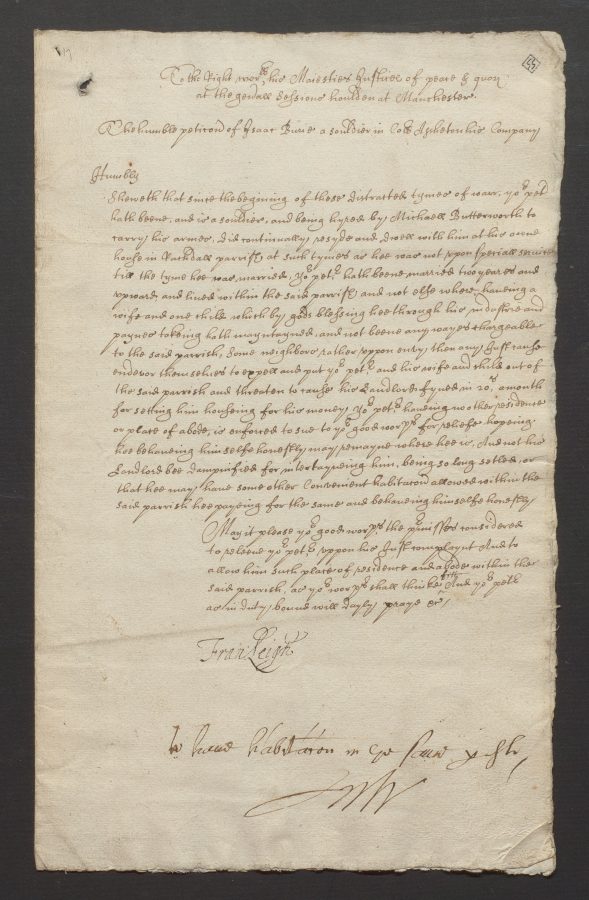 55
To the Right worpll his Maiesties Justices of peace & quor
at the genrall Sessions houlden at Manchester.
The humble peticon of Isaac Burie a souldier in Coll Asshetonhis Company
Humbly
Sheweth that since the begining of these distracted tymes of warr, yor petr
hath beene, and is a souldier, and being hyred by Michaell Butterworth to
carry his armes, did continually resyde and dwell with him at his owne
house in Rachdall parrish, at such tymes as hee was not vpon speciall service
till the tyme hee was married, Yor petr hath beene married two yeares and
vpward, and lived within the said parrish and not else where haueing a
wife and one child, which by gods blessing hee through his industrie and
paynes takeing hath mayntayned, and not beene any wayes chargeable
to the said parrish, Some neighbors rather vppon envy then any Just cause
endevor themselves to expell and put yor petr and his wife and child out of
the said parrish and threaten to cause his Landlord fyned in 20s a month
for setting him houseing for his money, Yor petr haueing no other residence
or place of abode, is enforced to sue to yor good worps for reliefe hopeing
hee behaueing himselfe honestly may remayne where hee is, And not his
Landlord bee dampnified for intertayneing him, being so long setled, or
that hee may haue some other Convenient habitacon allowed within the
said parrish hee payeing for the same and behaueing himselfe honestly
May it please yor good worps, the prmisses considered
to releeve yor petr vppon his Just complaynt And to
allow him such place of residence and abode within the
said parrish, as yor worps shall thinke fitt And yor petr
as in duty bound will dayly praye &c
Fran Leigh
to haue habitacon in ye same